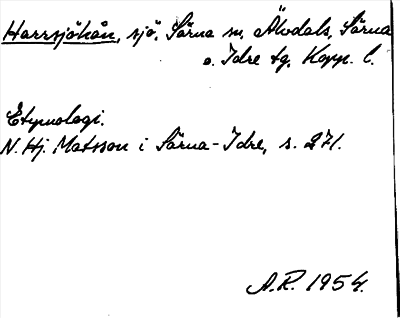 Harrsjöhån, sjö, Särna sn, Älvdals, Särna
o. Idre tg, Kopp. l.
Etymologi.
N. Hj. Matsson i Särna-Idre, s. 271.
A.R. 1954.